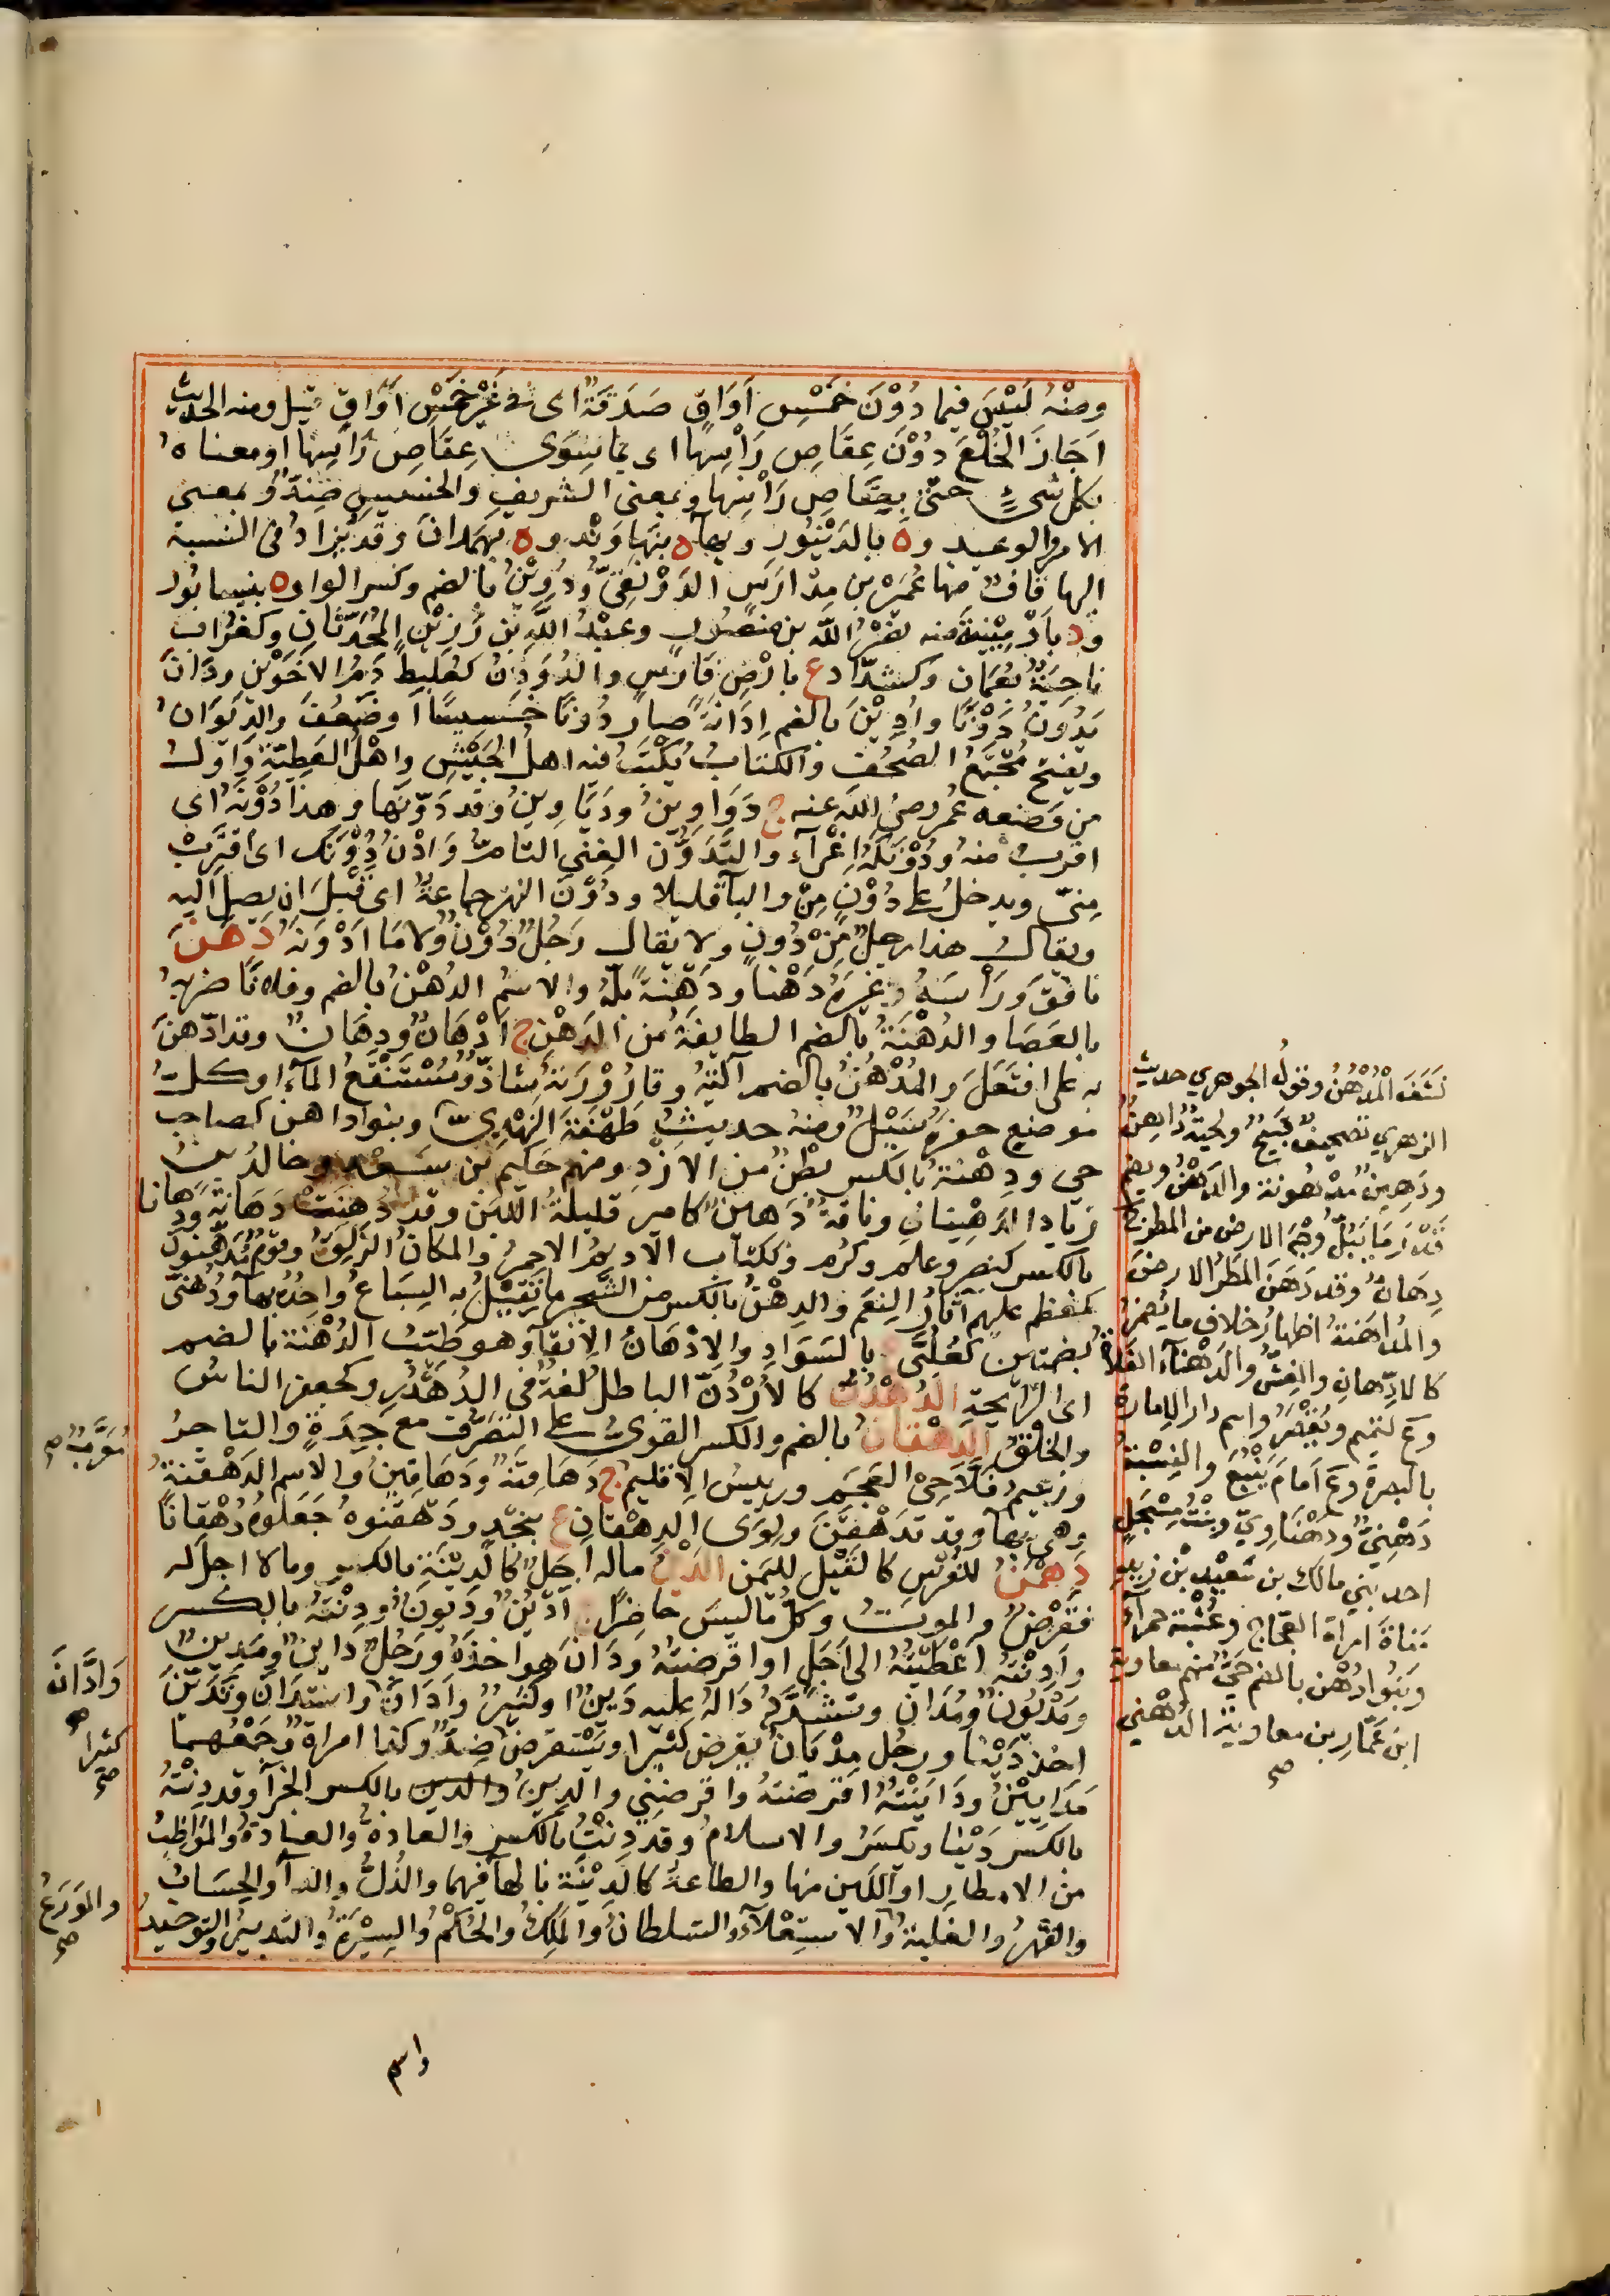 ومِنْهُ لَيْسَ فيما دُوْنَ خَمْسِ اَوَاقٍ صَدَقَةٌ اى فى غَيْرِ خَمْسِ اَوَاقٍ قيل ومنه الحديث
اَجَازَ الخُلْعَ دُوْنَ عِقَاصِ رَاْسِهَا اى بما سِوَى عِقَاصِ رَاْسِهَا او معناه
بكل شىءٍ حتىّ بِعِقَاصِ رَاْسِهَا وبمعنى الشريفِ والخسيسِ ضِدٌّ وبمعنى
الامرِ والوعيد و ة بالدَيْنَوَرِ وبهاء ة بنَهاوَنْد و ة بهَمَدانَ وقد يُزادُ فى النسبة
اليها قافٌ منها عُمَيْر بن مِرْدارَس الدَوْنَقِىُّ ودُوِيْنُ بالضم وكسر الواو ة بنيسابُور
ود باَرْمِيْنِيَةَ منه نَصْرُ اللّه بن منصُور وعبْدُ اللّهِ بْن رَزِيْنٍ المُحَدِّثَانِ وكغُرَابٍ
ناحِيَةٌ بعُمَان وكشَدَّادٍ ع بارْضِ فَارِسٍ والدُوَدِنُ كعُلَبِطٍ دَمُ الاخَوَيْن ودَانَ
يَدُوْنُ دَوْنًا واُدِيْنَ بالضم اِدَانَةً صارَ دُونًا خَسِيسًا اَو ضَعُفَ والدِيْوَانُ
ويفتح مُجْتَمَعُ الصُحُفِ والكتابُ يُكْتَبُ فيه اهلُ الجَيْشِ واَهْلُ العَطِيَّةِ واَوّل
من وَضعه عُمر رضى اللّه عنه ج دَوَاوِيْنُ ودَيَاوِيْنُ وقد دَوَّنَها وهذا دُوْنَهُ اى
اقربُ منه ودُوْنَكَهُ اِغْرَاء والتَدَوُّن الغِنىَ التامُّ وَادْنُ دُوْنَكَ اى اقْتَرِبْ
مِنىّ ويدخلُ على دُوْنٍ مِنْ والباءُ قليلا ودُوْنَ النهر جماعةٌ اى قَبْلَ ان يصل اليه
ويقالُ هذا رجلٌ مِنْ دُونٍ ولا يقال رَجُلٌ دُوْنٌ ولا مَا اَدْوَنَهُ دَهَنَ
نافَقَ ورَاْسَهُ وغيرَهُ دَهْنًا ودَهْنَةً بَلَّهُ والاسْمُ الدُهْنُ بالضم وفلانًا ضربهُ
بالعَصَا والدُهْنَةُ بالضم الطايفةُ من الدُهْنِ ج اَدْهَانٌ ودِهَانٌ وقد ادَّهَنَ
به على افتَعَلَ والمُدْهُنُ بالضم آلَتُهُ وقارُوْرَتهُ شاذٌّ ومُسْتَنْقَعُ المآءِ او كلُّ
موضعٍ حَفَرَهُ سَيْلٌ ومنه حديثُ طَهْفَةَ النَهْدِىّ وبنو داهن كصاحبٍ
حى ودِهْنَةُ بالكسر بطْنٌ من الازْدِ ومنهم حَكيم بن سَعْد وخالدُ بنُ
زيادٍ الدِهْنِيانِ وناقةٌ دَهينٌ كامير قليلةُ اللَبَن وقد دَهَنَتْ دَهَانَةً ودِهَانًا
بالكسر كنصر وعلم وكرم وككتاب الاديمُ الاحمرُ والمكانُ الزَلِقُ وقومٌ مُدَهَّنُونَ
كمعظم عليهم آثارُ النِعَم والدِهْنُ بالكسر من الشجر ما يُقْتَلُ به السِبَاعُ واحِدُهُ بهاء ودُهُنَّى
بضمتين كعُلِّىَّ ع بالسَوَادِ والاِدْهَانُ الاِبقاء وهو طَيّبُ الدُهْنة بالضم
اى الرَايحةِ الدُهْدُنُّ كالاُرْدُنّ الباطلُ لغةٌ فى الدُهْدُرِّ وكجعفرٍ الناسُ
والخَلْقُ الدِهْقَانُ بالضم والكسر القوىُّ على التَصَرُّف مع حِدَةٍ والتاجرُ
وزعيمُ فَلاَّحِى العَجَمِ ورييسُ الاقليم ج دَهَاقِنَةٌ ودَهَاقِيْنُ والاسم الدَهْقَنَةُ
وهى بهاء وقد تَدَهْقَنَ ولِوَى الدِهْقانِ ع بنَجْدٍ ودَهْقَنُوهُ جَعَلُوهُ دُهْقَانًا
دَهْمَنٌ للفُرْسِ كالقَيْل لليَمن الدَيْنُ ماله اَجَلٌ كالدِيْنَةِ بالكسر وما لا اجلَ له
فقَرْضٌ والموتُ وكلُّ مَا لَيسَ حَاضرًا ج اَدْيُنٌ ودُيُونٌ ودِنْتُهُ بالكسر
واَدَنْتُهُ اعْطَيْتُهُ الى اَجَلٍ او اقرضتُهُ ودَانَ هو اخذَهُ ورَجُلٌ دائنٌ ومَدِينٌ
ومَدْيُونٌ ومُدَانٌ وتشدَّدُ دَالُهُ عليه دَيْنٌ او كَثِيرٌ واَدَانَ واسْتَدَانَ وتَدَيَّنَ
اخذ دَيْنًا ورجُل مِدْيَانٌ يُقرض كثيرا ويَسْتقرضُ ضِدٌّ وكذا امراةٌ جَمْعُهما
مَدَايِيْنُ ودَايَنْتُهُ اقرضتهُ واقرضَنِي والدِينُ بالكسر الجَزَاءُ وقد دِنْتُهُ
بالكسر دَيْنًا ويكسَرُ والاسلامُ وقد دِنْتُ بالكسر والعادَةُ والعبادَةُ والمُوَاظِبُ
من الامطارِ او اللَيِّن منها والطاعةُ كالدِيْنَةِ بالهاء فيهما والذُلُّ والداءُ والحِسَابُ
والقَهْرُ والغلبةُ والاسْتِعْلاَءُ والسلطانُ والمَلِكُ والحُكْمُ والسِيْرَةُ والتدبيرُ والتوحيدُ
نَشَفَ المُدْهُنُ وقولُ الجوهري حديثُ
الزهري تصحيفٌ قبيحٌ ولحيةٌ دَاهِنٌ
ودَهِينٌ مدهُونة والدَهْنُ ويضم
قَدْرُ ما يَبُلُّ وَجْهَ الارض من المطر ج
دِهَانٌ وقد دَهَنَ المطرُ الارضَ
والمُدَاهَنةُ اظهارُ خلاف ما يُضمَرُ
كالادّهانِ والغِشُّ والدَهْنَاءُ الفَلاةُ
وع لتميم ويُقْصَرُ واسم دار الامارة
بالبصرة وع اَمَامَ يَنْبُعَ والنِسْبَةُ
دَهْنِيٌّ ودَهْنَاوِيٌّ وبنْتُ مِسْحَلٍ
احد بني مالك بن سَعْد بْن زيد
مَنَاةَ امراة العجّاج وعُشْبة حمراء
وبَنُو دُهْن بالضم حَيٌّ منهم معاوية
ابن عَمَّار بن معاوية الدُهْني
صح
مُعَرَّبٌ صح
وَادَّانَ
صح
كثيرا
صح
والمَوْرَعُ
صح
واسم